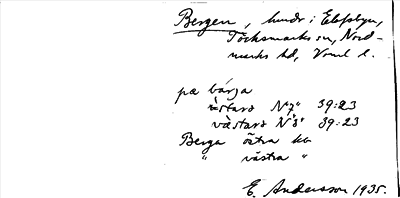 Bergen, hundr i Elofsbyn,
Töcksmarks sn, Nord-
marks hd, Värml l.
pæ bárja
östarº Nº7" 39:23
våstarº Nº8" 39:23
Berga östra kb
" västra "
E. Andersson 1935.